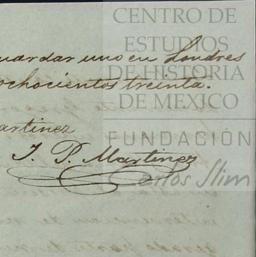 CENTRO DE
ESTUDIOS
DE HISTORIA
DE MEXICO
FUNDACIÓN
Carlos Slim
guardar uno en Londres
ochocientos treinta.
artinez
J. P. Martinez